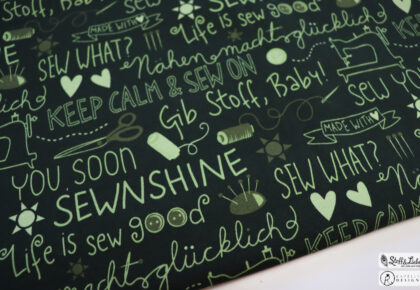 Stoff, Baby!
MADE WITH
Life is sew good
SEW WHAT? !!!
Nähen macht glücklich
KEEP CALM & SEW ON
Gib Stoff, Baby!
MADE WITH
YOU SOON
SEWNSHINE
SEW WHAT?
Life is sew good
KEEP CALM
macht glücklich
SEW
DESIGN